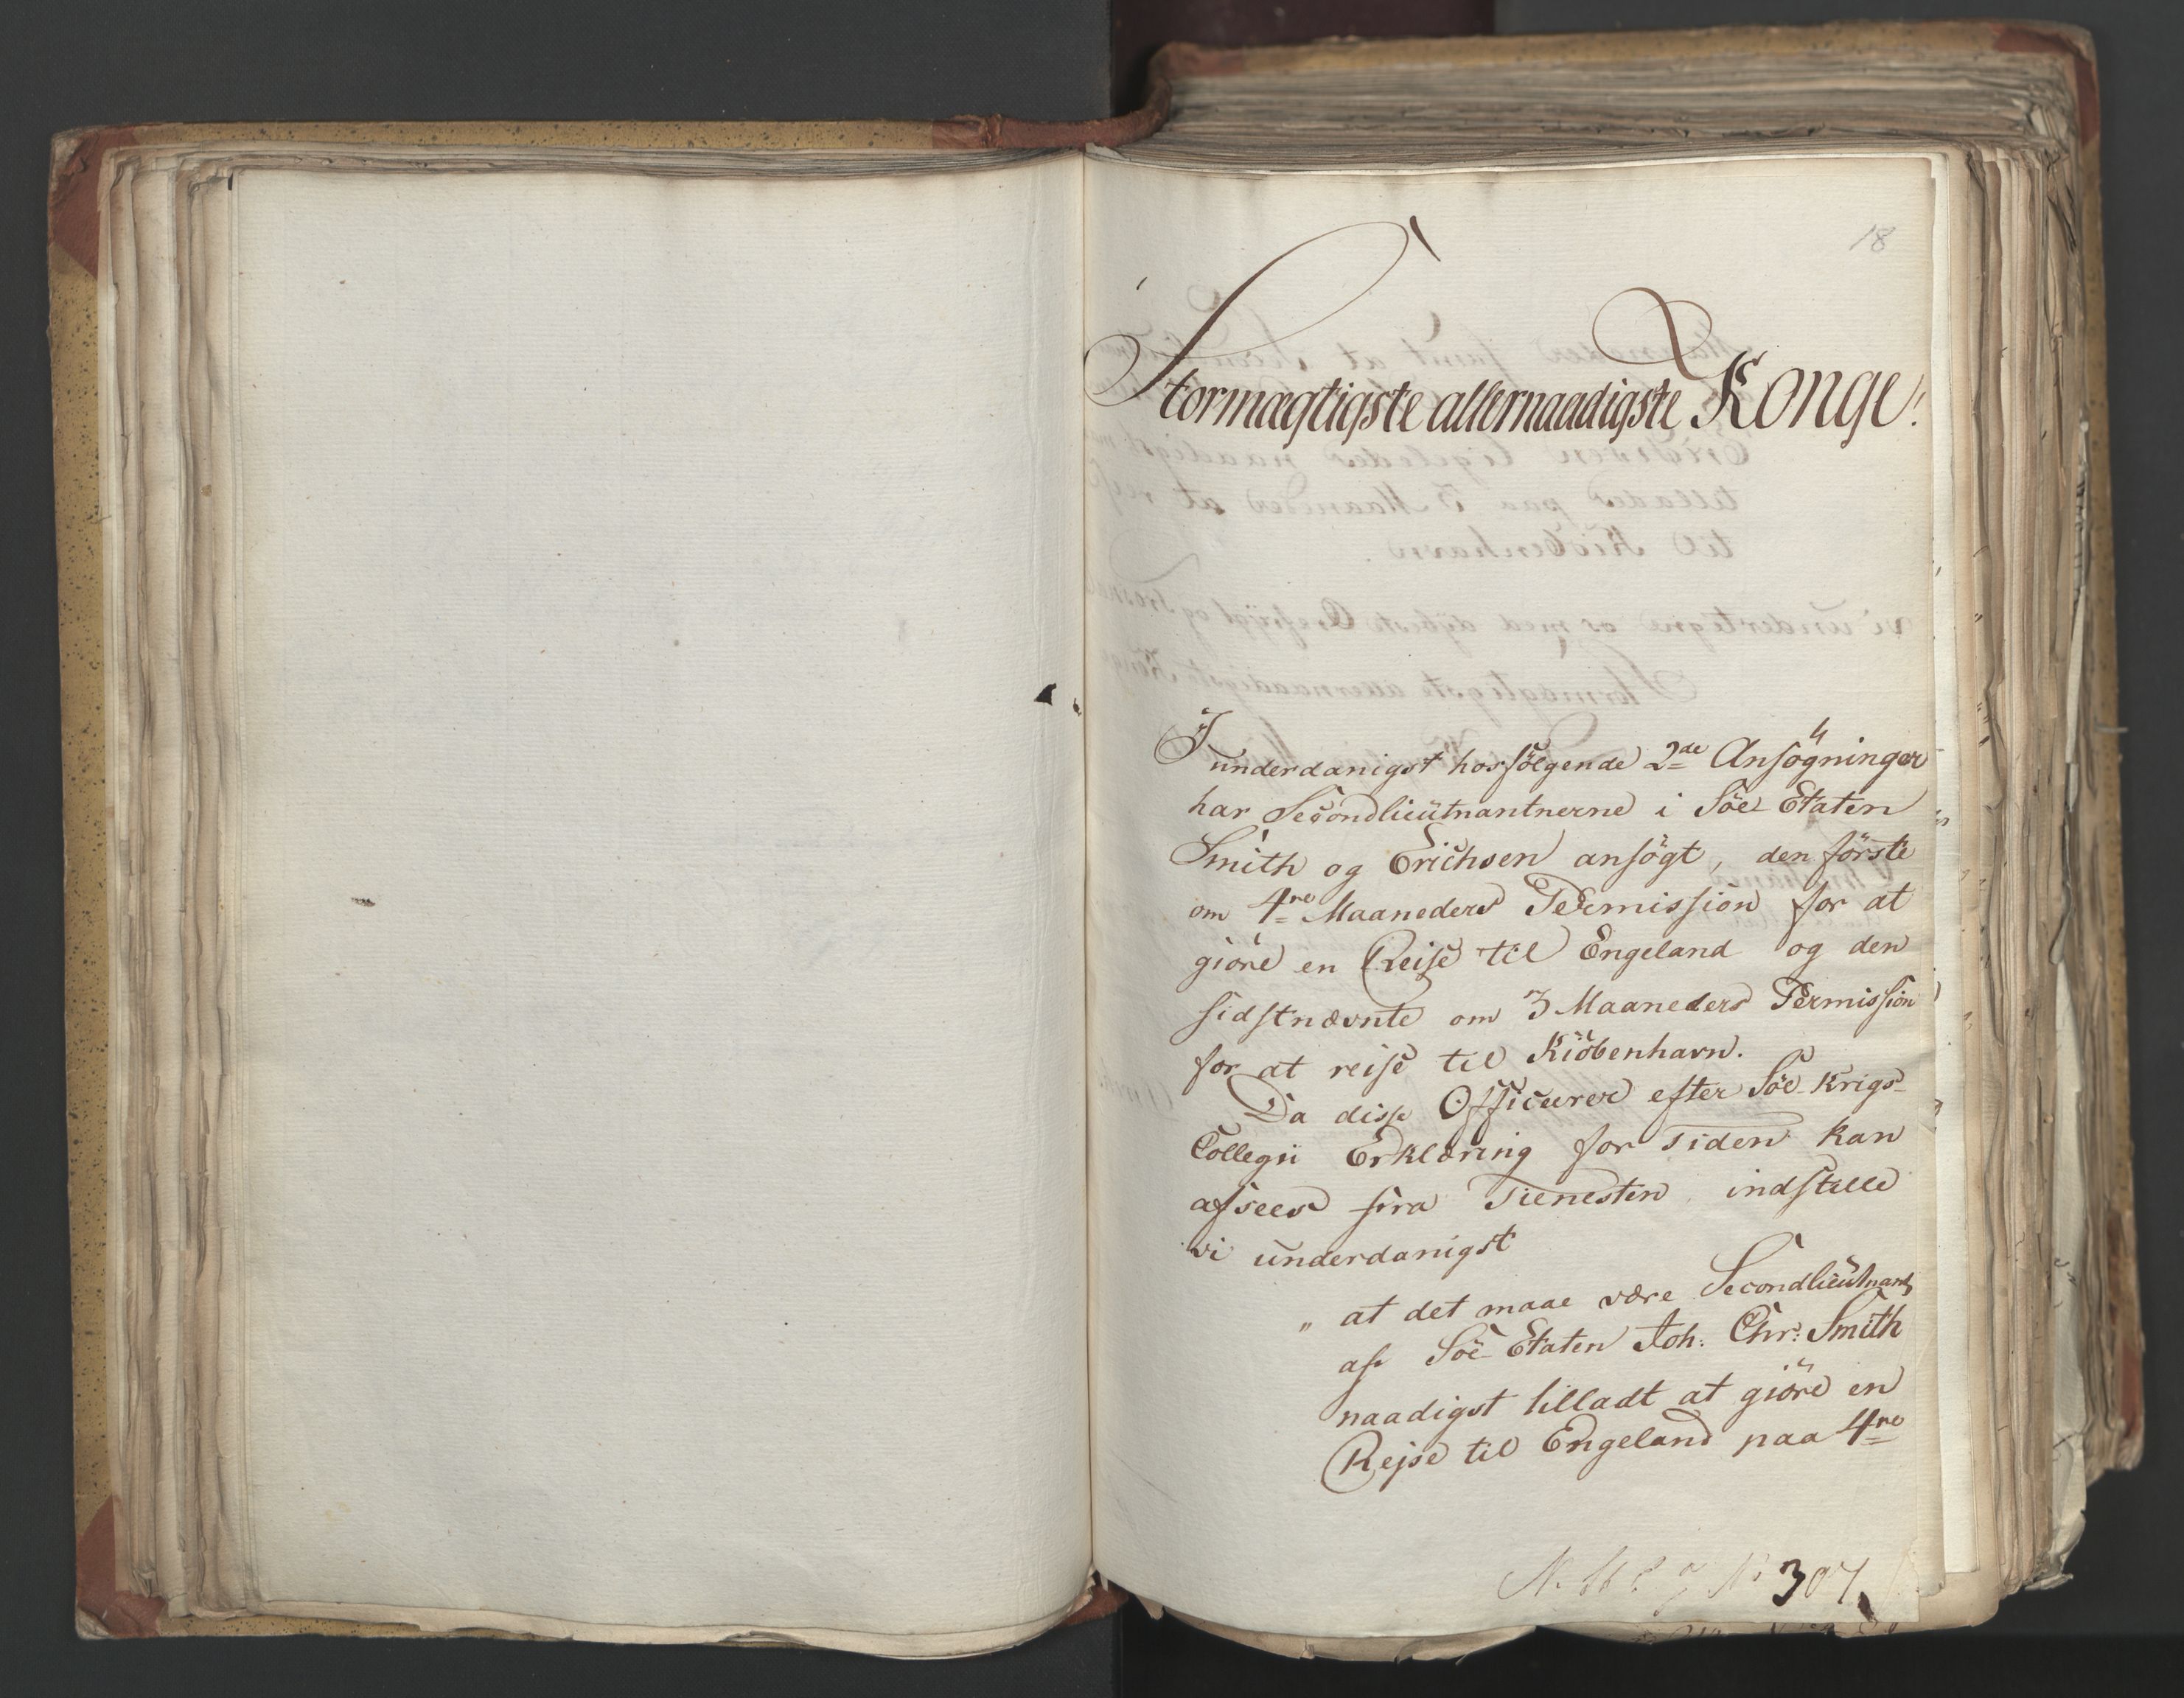 18
Stormægtigste allernaadigste Konge!
I underdanigst hosfölgende 2de Ansögninger
har Secondlieutnantnerne i Söe Etaten
Smith og Erichsen ansögt, den förste
om 4re Maaneders Permission for at
giöre en Reise til Engeland og den
sidstnævnte om 3 Maaneders Permission
for at reise til Kiöbenhavn.
Da disse Officerer efter Söe-Krigs-
Collegii Erklæring for Tiden kan
afsees fra Tienesten indstille
vi underdanigst
" at det maae være Secondlieutnant
af Söe-Etaten Joh: Chr: Smith
naadigst tilladt at giöre en
Rejse til Engeland paa 4re
No 307